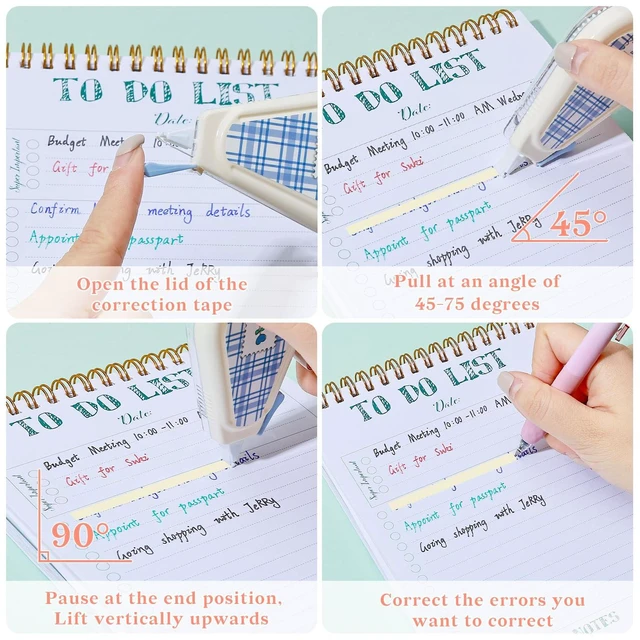 TO DO LIST
Date:
Budget Meet 10:00
Super Important
Gift for
Confirm meeting details
Appoint passpart
Going shopping with JeRRy
Open the lid of the
correction tape
TO DO LIST
Date:
Budget Meeting 10:00 -11:00 AM Wedn
Gift for Suki
Appoint for passpart
Going shopping with JeRRy
45°
Pull at an angle of
45-75 degrees
TO DO LIST
Date:
Budget Meeting 10:00 -11:00
Gift for Suki
Super Important
ails
Appoint for passpart
Going shopping with JeRRy
90°
Pause at the end position,
Lift vertically upwards
TO DO LIST
Date:
Budget Meeting 10:00 -11:00 AM
Gift for Suki
Super Important
ails
Appoint for passpart
Going shopping with JeRRy
NOTES
Correct the errors you
want to correct